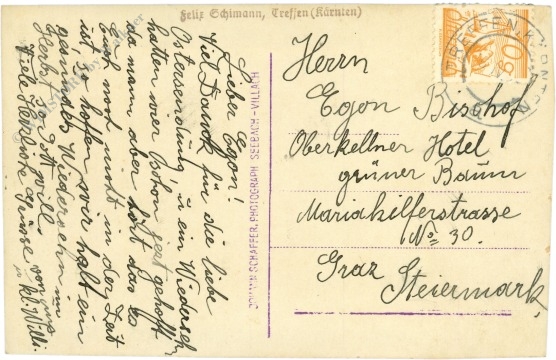 Felix Schimann, Treffen (Kärnten)
Lieber Egon!
Viel Dank für die liebe
Ostersendung u ein Wiederseh
hätten wir schon jetzt gehofft
da mann aber hört das es
Euch noch nicht in der Zeit
ist, so hoffen wir halt ein
gesundes Wiedersehn im
Herbst so Gott will.
Viele Herzliche Grüsse von uns
u kl. Willi.
JOHANN SCHAFFER, PHOTOGRAPH SEEBACH-VILLACH
TREFFEN KÄRNTEN
60
Herrn
Egon Bischof
Oberkellner Hotel
grüner Baum
Mariahilferstrasse
No 30.
Graz
Steiermark